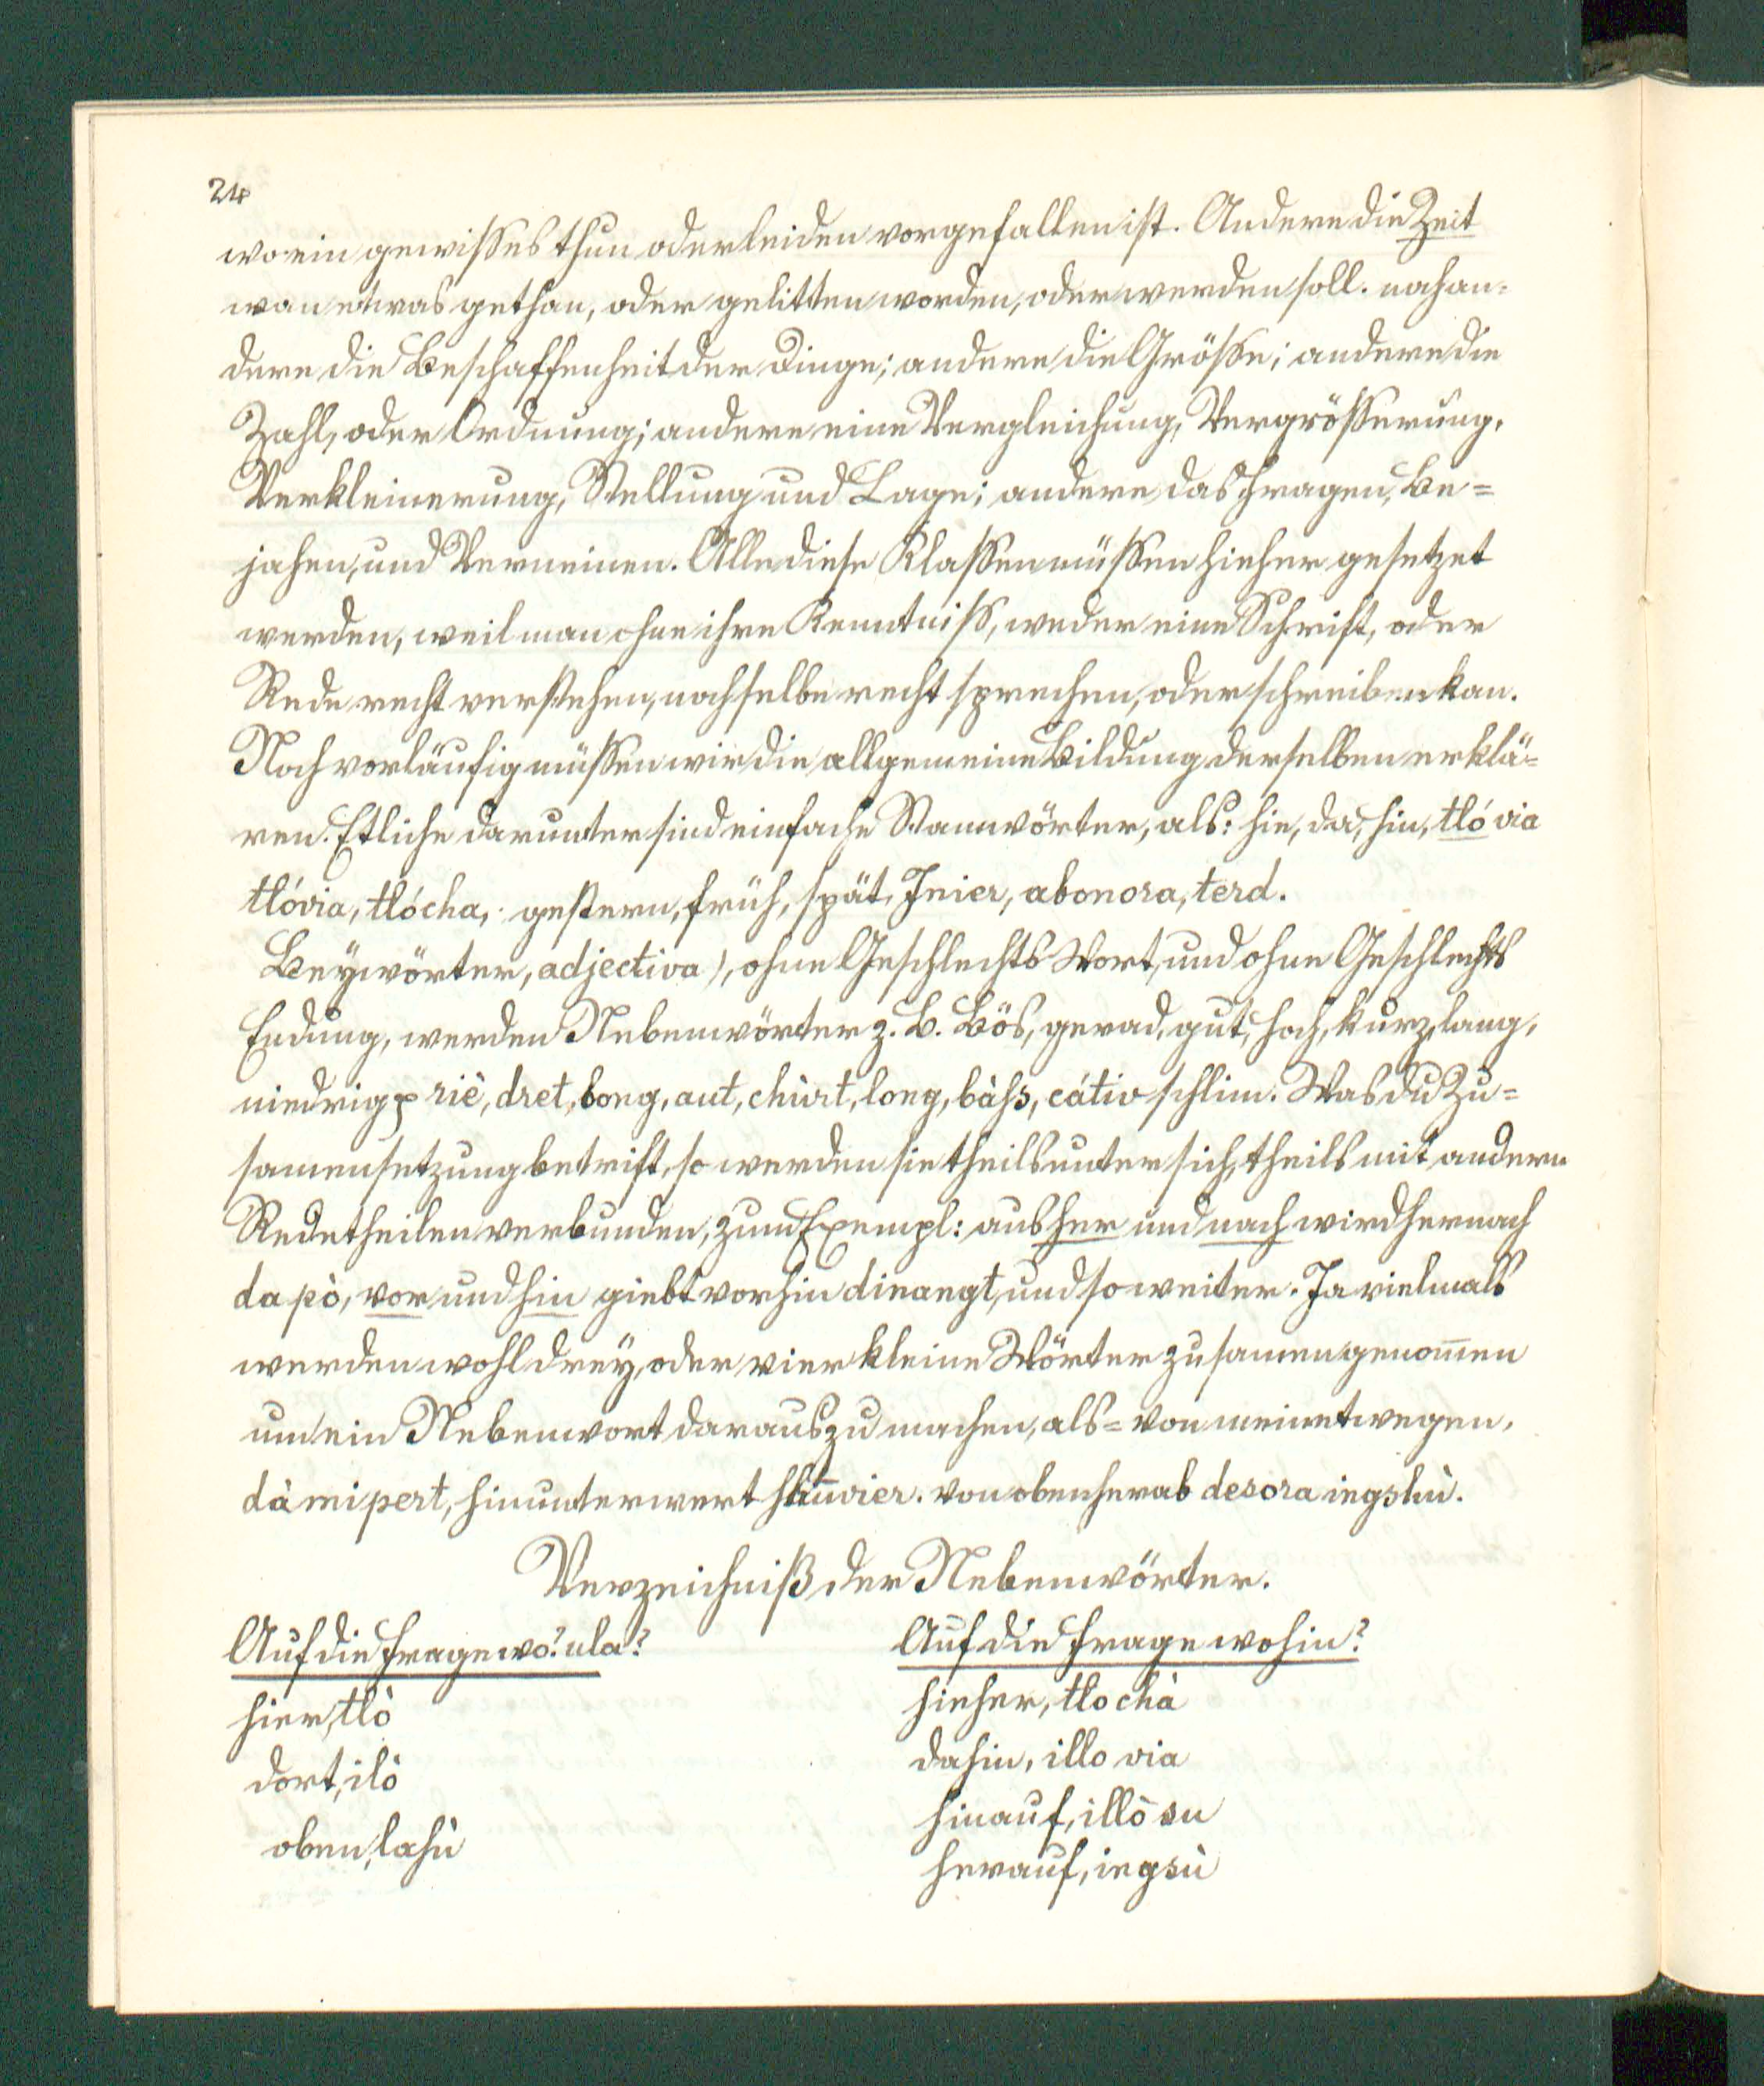 24
wo ein gewisses thun oder leiden vorgefallen ist. Andere die Zeit
wan etwas gethan, oder gelitten worden, oder werden soll. noch an-
dere die Beschaffenheit der Dinge; andere die Grösse; andere die
Zahl, oder Ordnung; andere eine Vergleichung, Vergrösserung,
Verkleinerung, Stellung und Lage; andere das Fragen, Be=
jahen, und Verneinen. Alle diese Klassen müssen hieher gesetzet
werden, weil man ohne ihre Kenntniss, weder eine Schrift, oder
Rede recht verstehen, noch selbe recht sprechen, oder schreiben kan.
Noch vorläufig müssen wir die allgemeine Bildung derselben erklä=
ren. Etliche darunter sind einfache Stamwörter, als: hie, da, hin, tló via
tlóvia, tlócha, gestern, früh, spät, Inier, abonora, terd.
Beÿwörter, adjectiva), ohne Geschlechts Wort, und ohne Geschlechts
Endung, werden Nebenwörter z. B. Bös, gerad, gut, hoch, kurz, lang,
niedrig riè, dret, bong, aut, chùrt, long, bàss, càtiv schlim. Was du Zu=
samensetzung betrift, so werden sie theils unter sich, theils mit andern
Redetheilen verbunden, zum Exempl: aus her und nach wird hernach
da pò, vor und hin giebt vorhin dinangt, und so weiter. Ja vielmals
werden wohl dreÿ, oder vier kleine Wörter zusamen genom̄en
um ein Nebenwort daraus zu machen, als= von meinetwegen,
dà mi pert, hinunterwert von obenherab desora ingshù.
Verzeichniß der Nebenwörter.
Auf die Frage wo? ula?
hier, tlò
dort, ilò
oben, lasù
Auf die Frage wohin?
hieher, tlo chà
dahin, illo via
hinauf, illò su
herauf, ingsù